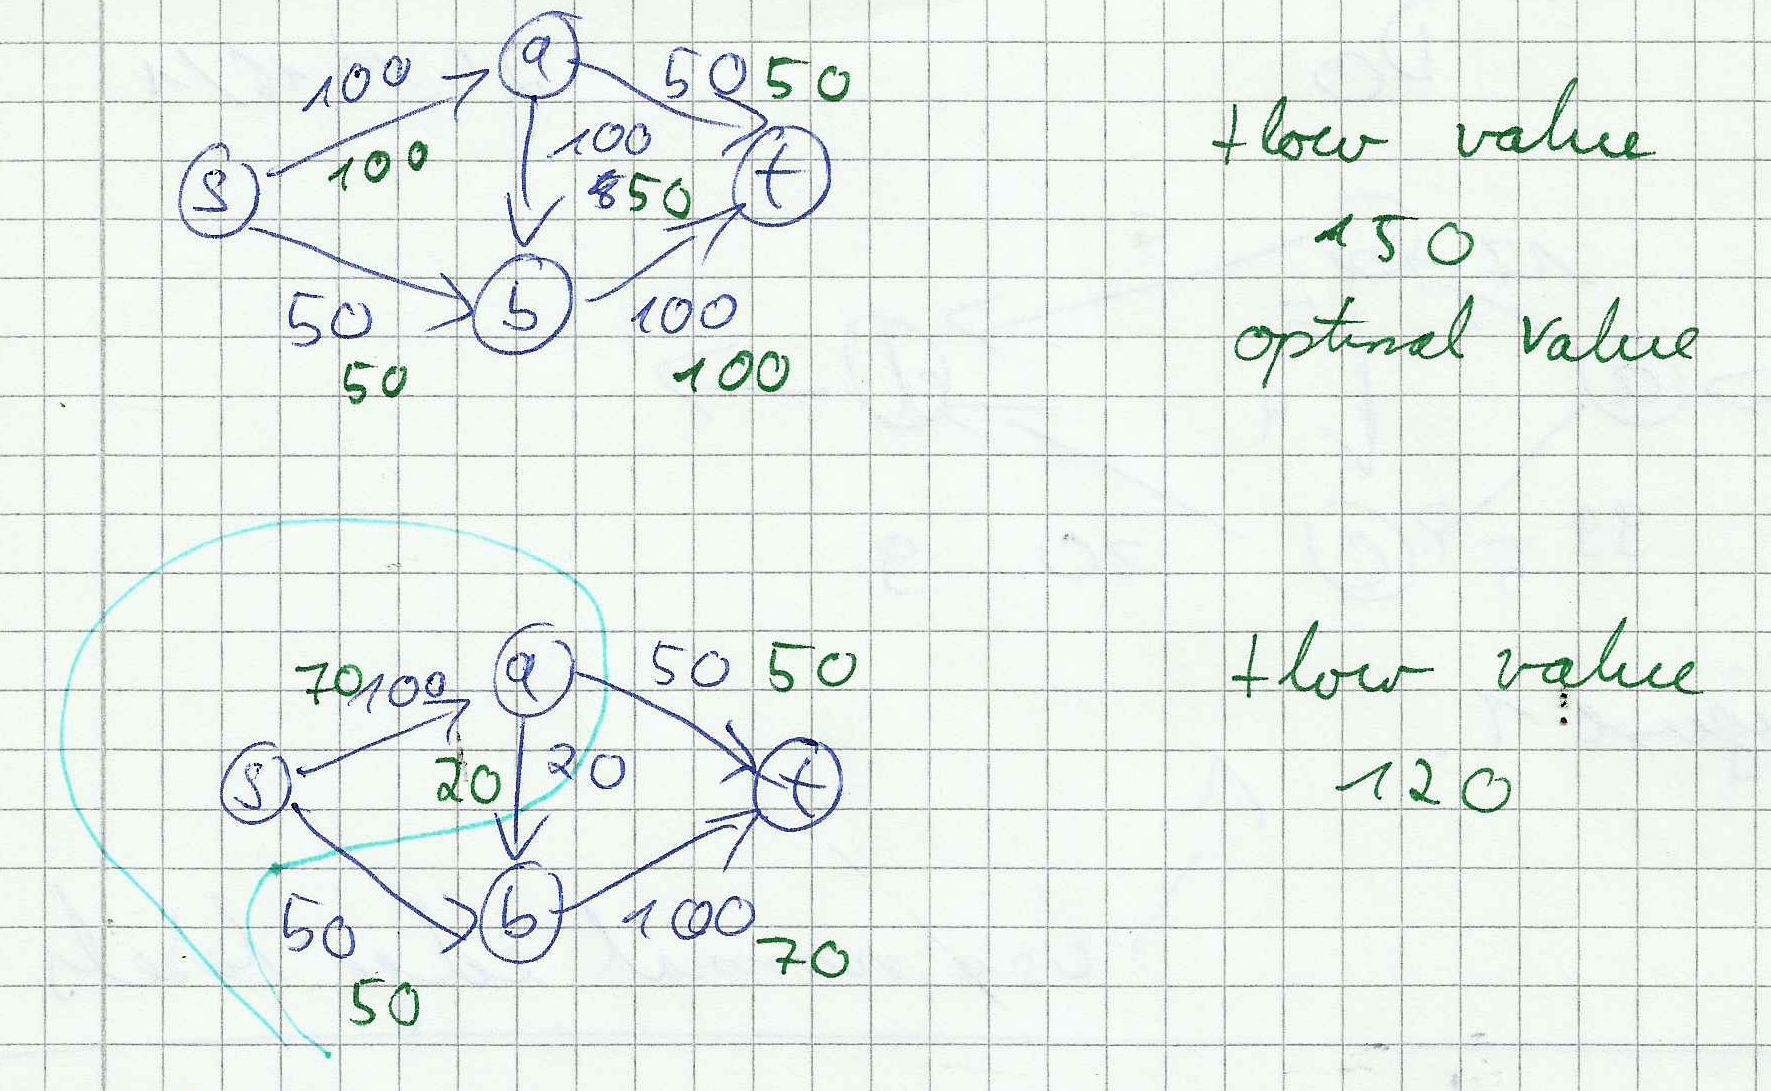 a
100 50 50
100 100
s t
50
b
50 100
50 100
flow value
150
optimal value
a
70 100 50 50
s 20 20 t
b
50 100
50 70
flow value
120